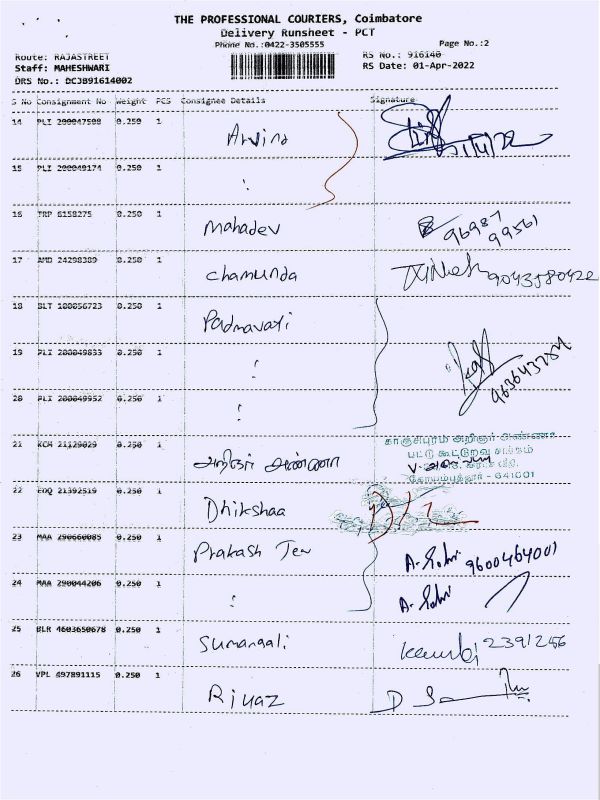 THE PROFESSIONAL COURIERS, Coimbatore
Delivery Runsheet - PCT
Phone No.:0422-3505555
Page No.:2
Route: RAJASTREET
RS No.: 916140
Staff: MAHESHWARI
RS Date: 01-Apr-2022
DRS No.: DCJB91614002
S No Consignment No Weight PCS Consignee Details Signature
14 PLI 200047508 0.250 1 Arvind
15 PLI 200049174 0.250 1 :
16 TRP 6158275 0.250 1 Mahadev 96987
99561
17 AMD 24298389 0.250 1 Chamunda 9043580422
18 BLT 100056723 0.250 1 Padmavati
19 PLI 200049833 0.250 1 :
963643784
20 PLI 200049952 0.250 1 :
காஞ்சிபுரம் அறிஞர் அண்ணா
21 KCH 21129029 0.250 1 அறிஞர் அண்ணா பட்டு கூட்டுறவு சங்கம்
கோயம்புத்தூர் - 641001
22 EDQ 21392519 0.250 1 Dhikshaa
23 MAA 290660085 0.250 1 Prakash Jew 9600464001
24 MAA 290044206 0.250 1 :
25 BLR 4603650678 0.250 1 Sumangali 2391256
26 VPL 497891115 0.250 1 Riyaz